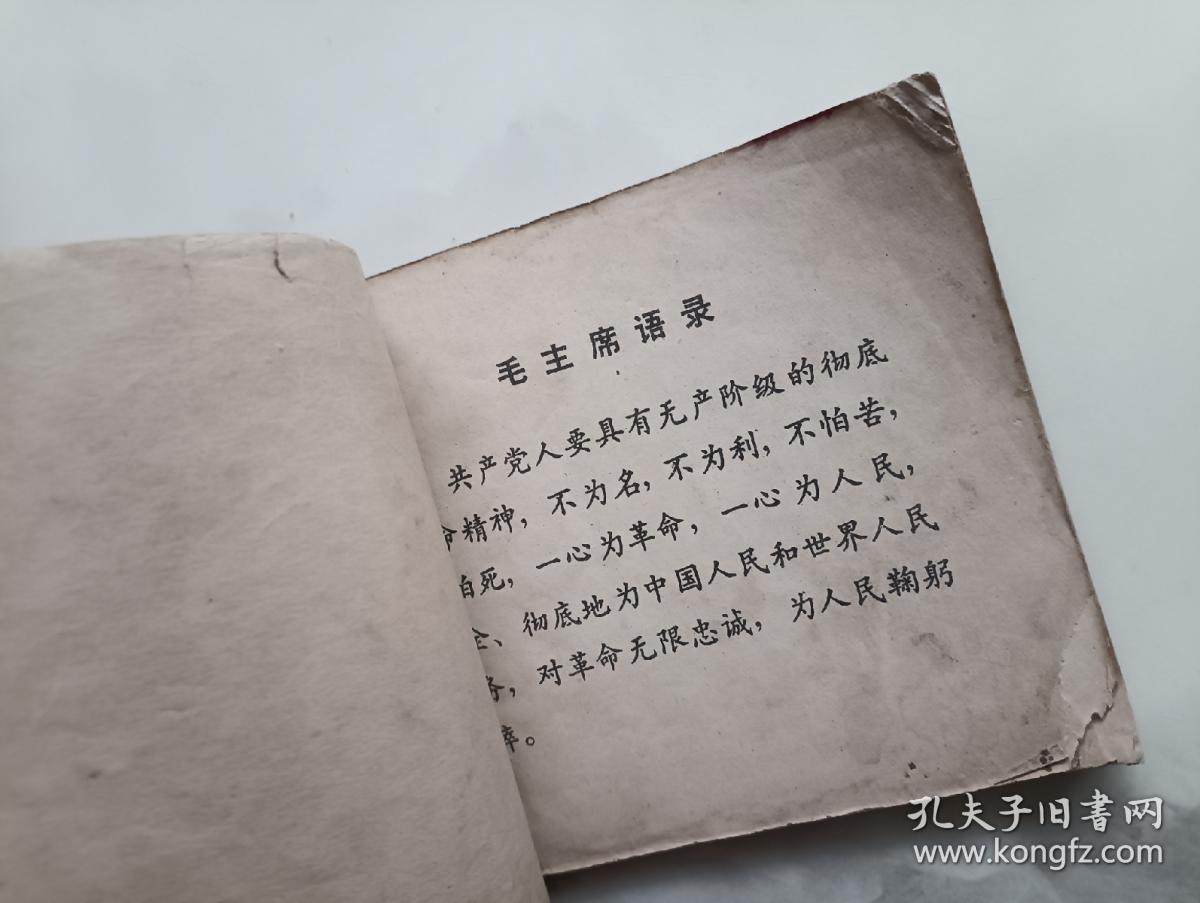 毛主席语录
共产党人要具有无产阶级的彻底
命精神，不为名，不为利，不怕苦，
怕死，一心为革命，一心为人民，
全、彻底地为中国人民和世界人民
务，对革命无限忠诚，为人民鞠躬
瘁。
孔夫子旧书网
www.kongfz.com